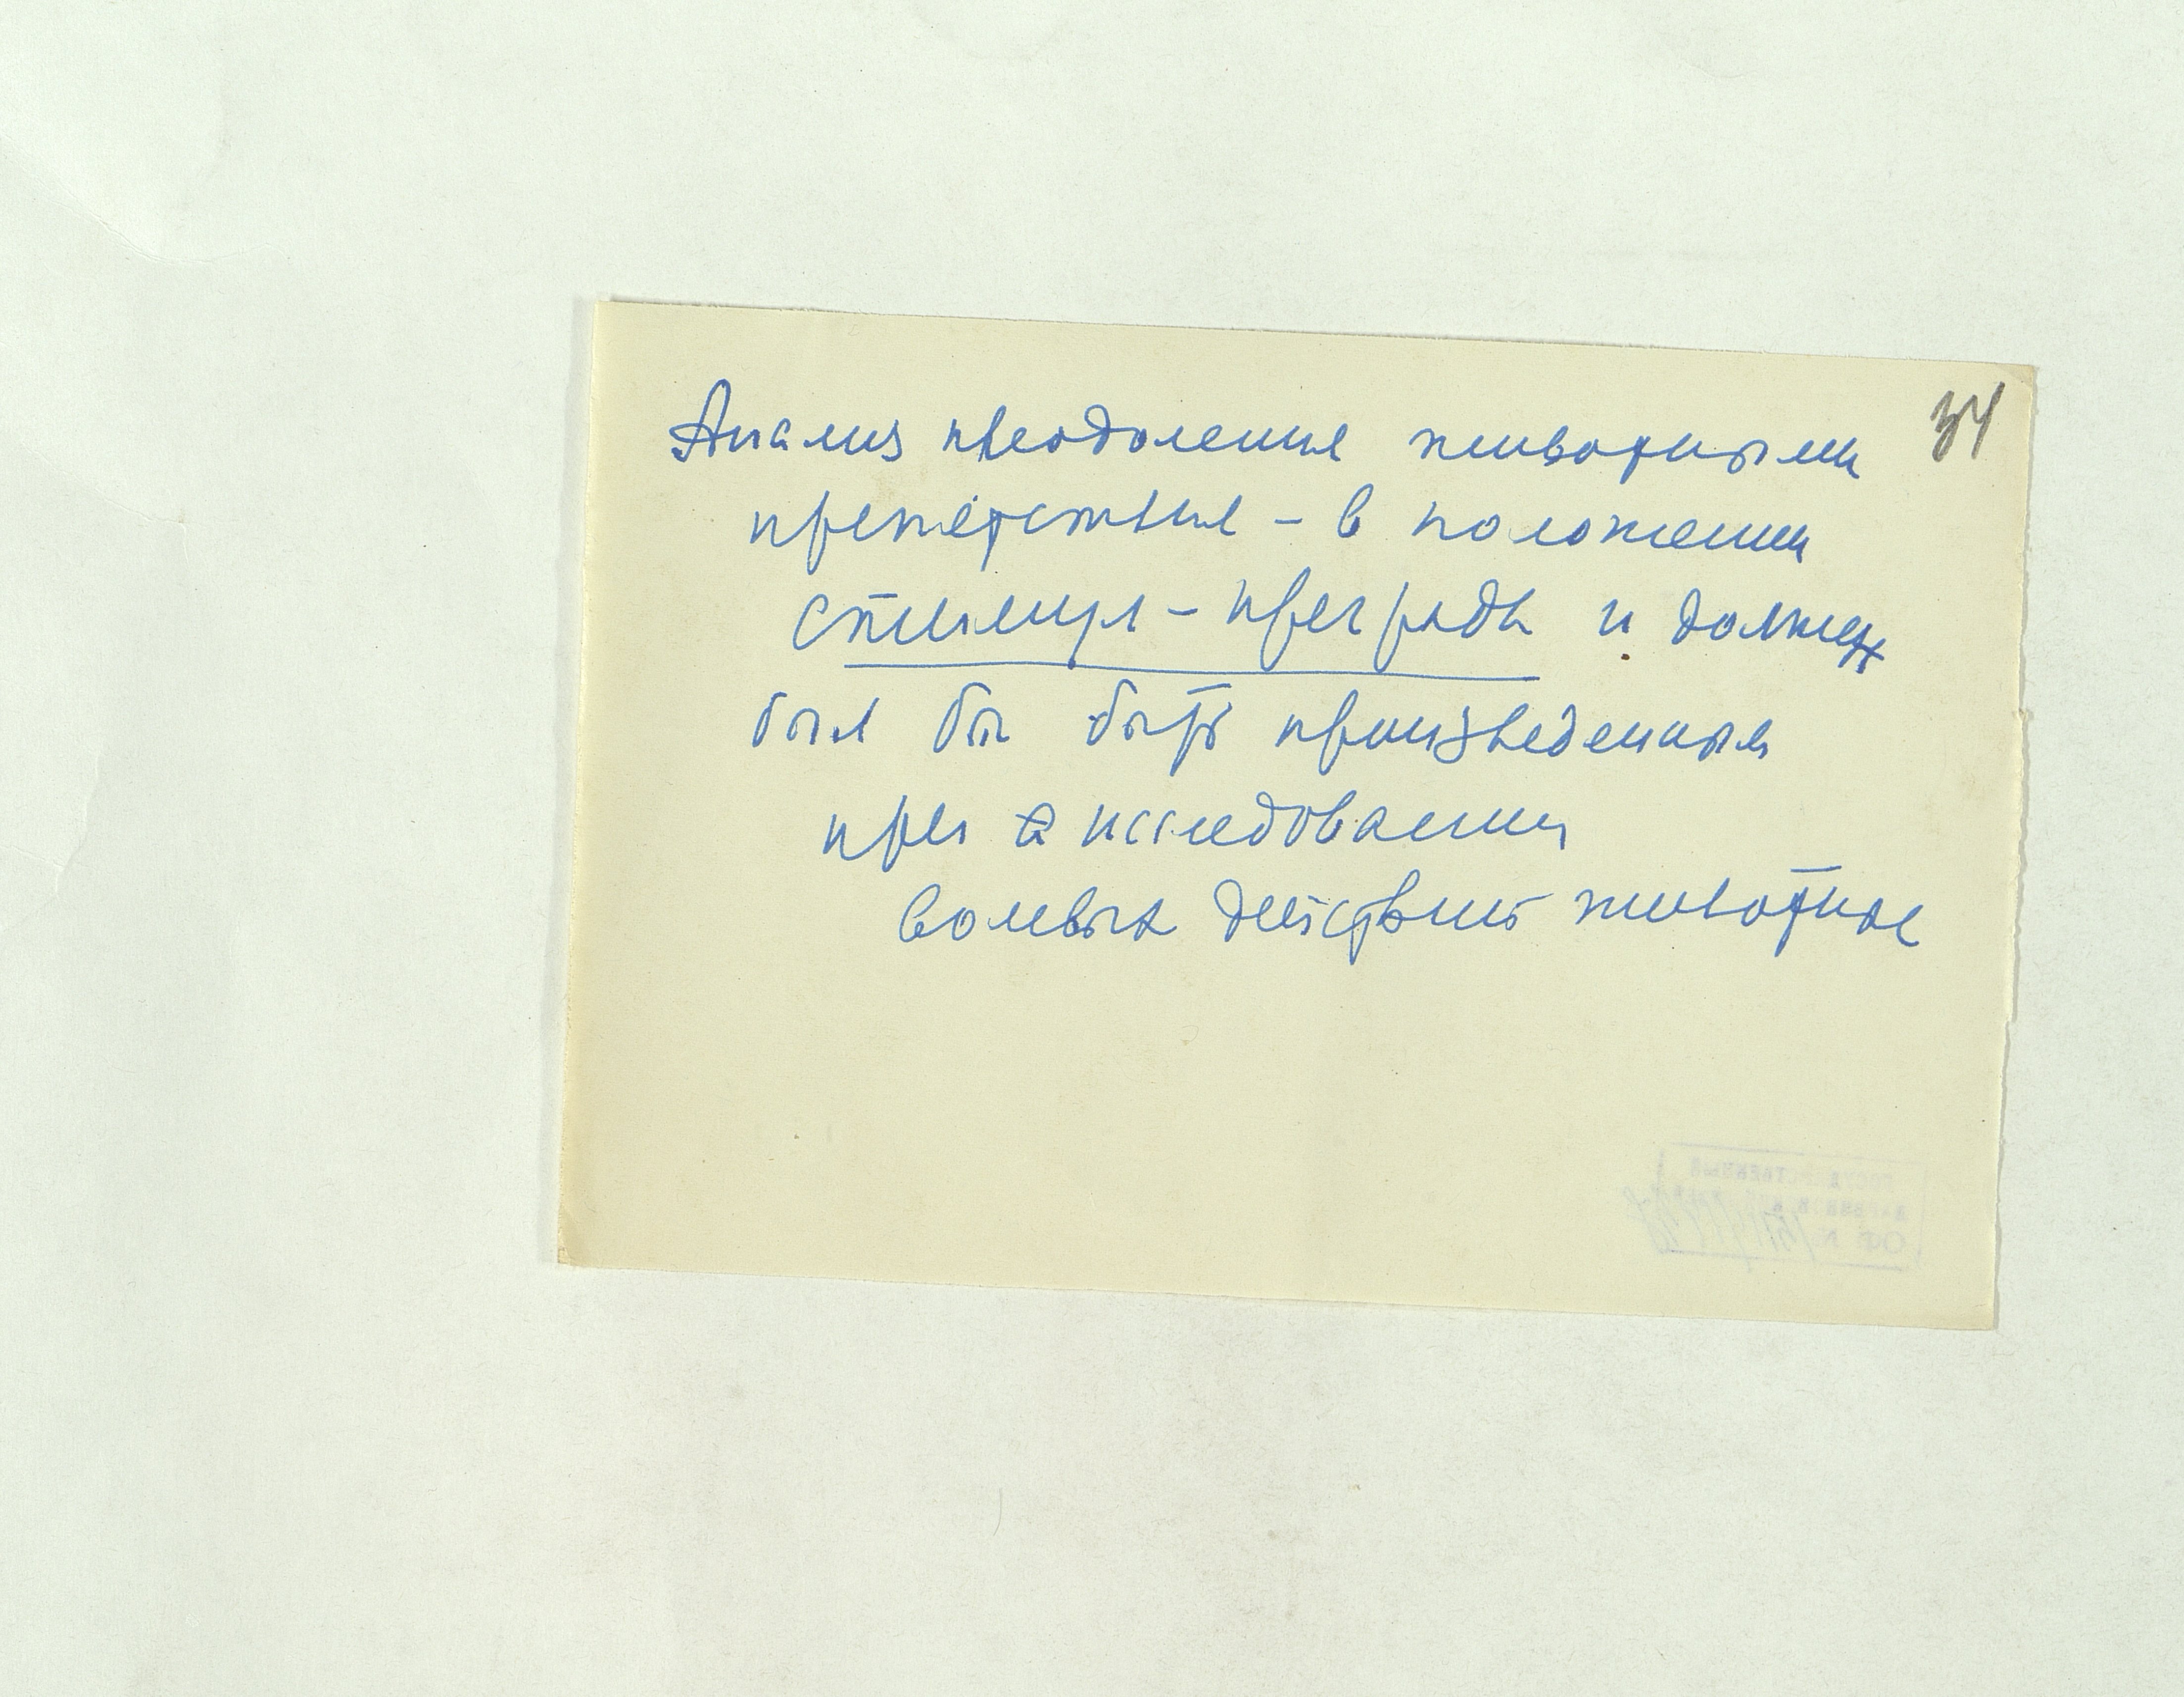 Анализ преодоления животными 34
препятствия - в положении
стимул - преграды и должен
был бы быть произведенным
при исследовании
волевых действий животное
ГОСУДАРСТВЕННЫЙ